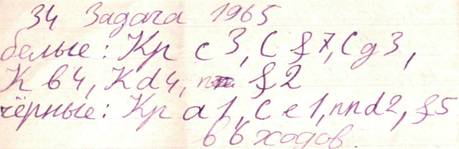 34 Задача 1965
белые: Кр c3, С f7, Сg3,
К b4, Кd4, п f2
чёрные: Кр a1, С e1, ппd2, f5
6 6 ходов.